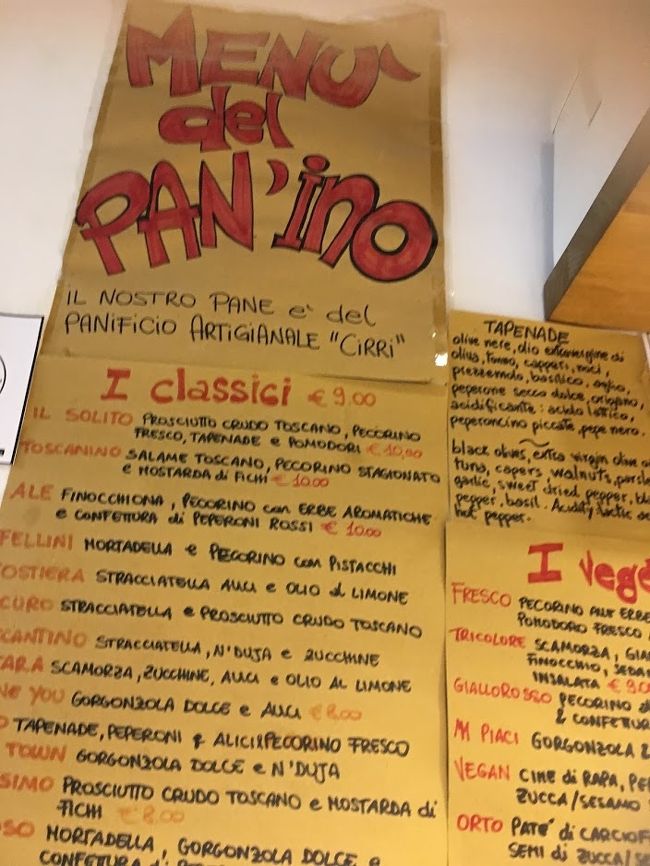 MENÙ
del
PAN'INO
IL NOSTRO PANE e' del
PANIFICIO ARTIGIANALE "CIRRI"
I classici € 9.00
IL SOLITO PROSCIUTTO CRUDO TOSCANO, PECORINO
FRESCO, TAPENADE e POMODORI € 10,00
TOSCANINO SALAME TOSCANO, PECORINO STAGIONATO
e MOSTARDA di FICHI € 10.00
ALE FINOCCHIONA, PECORINO con ERBE AROMATICHE
e CONFETTURA di PEPERONI ROSSI € 10.00
FELLINI MORTADELLA e PECORINO con PISTACCHI
OSTIERA STRACCIATELLA ALICI e OLIO al LIMONE
CURO STRACCIATELLA e PROSCIUTTO CRUDO TOSCANO
CANTINO STRACCIATELLA, N'DUJA e ZUCCHINE
ARA SCAMORZA, ZUCCHINE, ALICI e OLIO AL LIMONE
NE YOU GORGONZOLA DOLCE e ALICI € 8.00
TAPENADE, PEPERONI & ALICI & PECORINO FRESCO
TOWN GORGONZOLA DOLCE e N'DUJA
SIMO PROSCIUTTO CRUDO TOSCANO e MOSTARDA di
FICHI € 8.00
OSO MORTADELLA, GORGONZOLA DOLCE e
CONFETTURA di
TAPENADE
olive nere, olio extravergine di
oliva, tonno, capperi, noci,
prezzemolo, basilico, aglio,
peperone secco dolce, origano,
acidificante: acido lattico,
peperoncino piccate, pepe nero.
black olives, extra virgin olive
tuna, capers walnuts, parsl
garlic, sweet dried pepper, bl
pepper, basil. Acidity lactic
hot pepper.
I vege
FRESCO PECORINO ALLE ERBE
POMODORO FRESCO
TRICOLORE SCAMORZA, GIA
FINOCCHIO, SEDAN
INSALATA € 9.00
GIALLOROSSO PECORINO
& CONFETTUR
MI PIACI GORGONZOLA &
VEGAN CIME di RAPA, PE
ZUCCA/SESAMO
ORTO PATE' di CARCIOF
SEMI di ZUCCA/